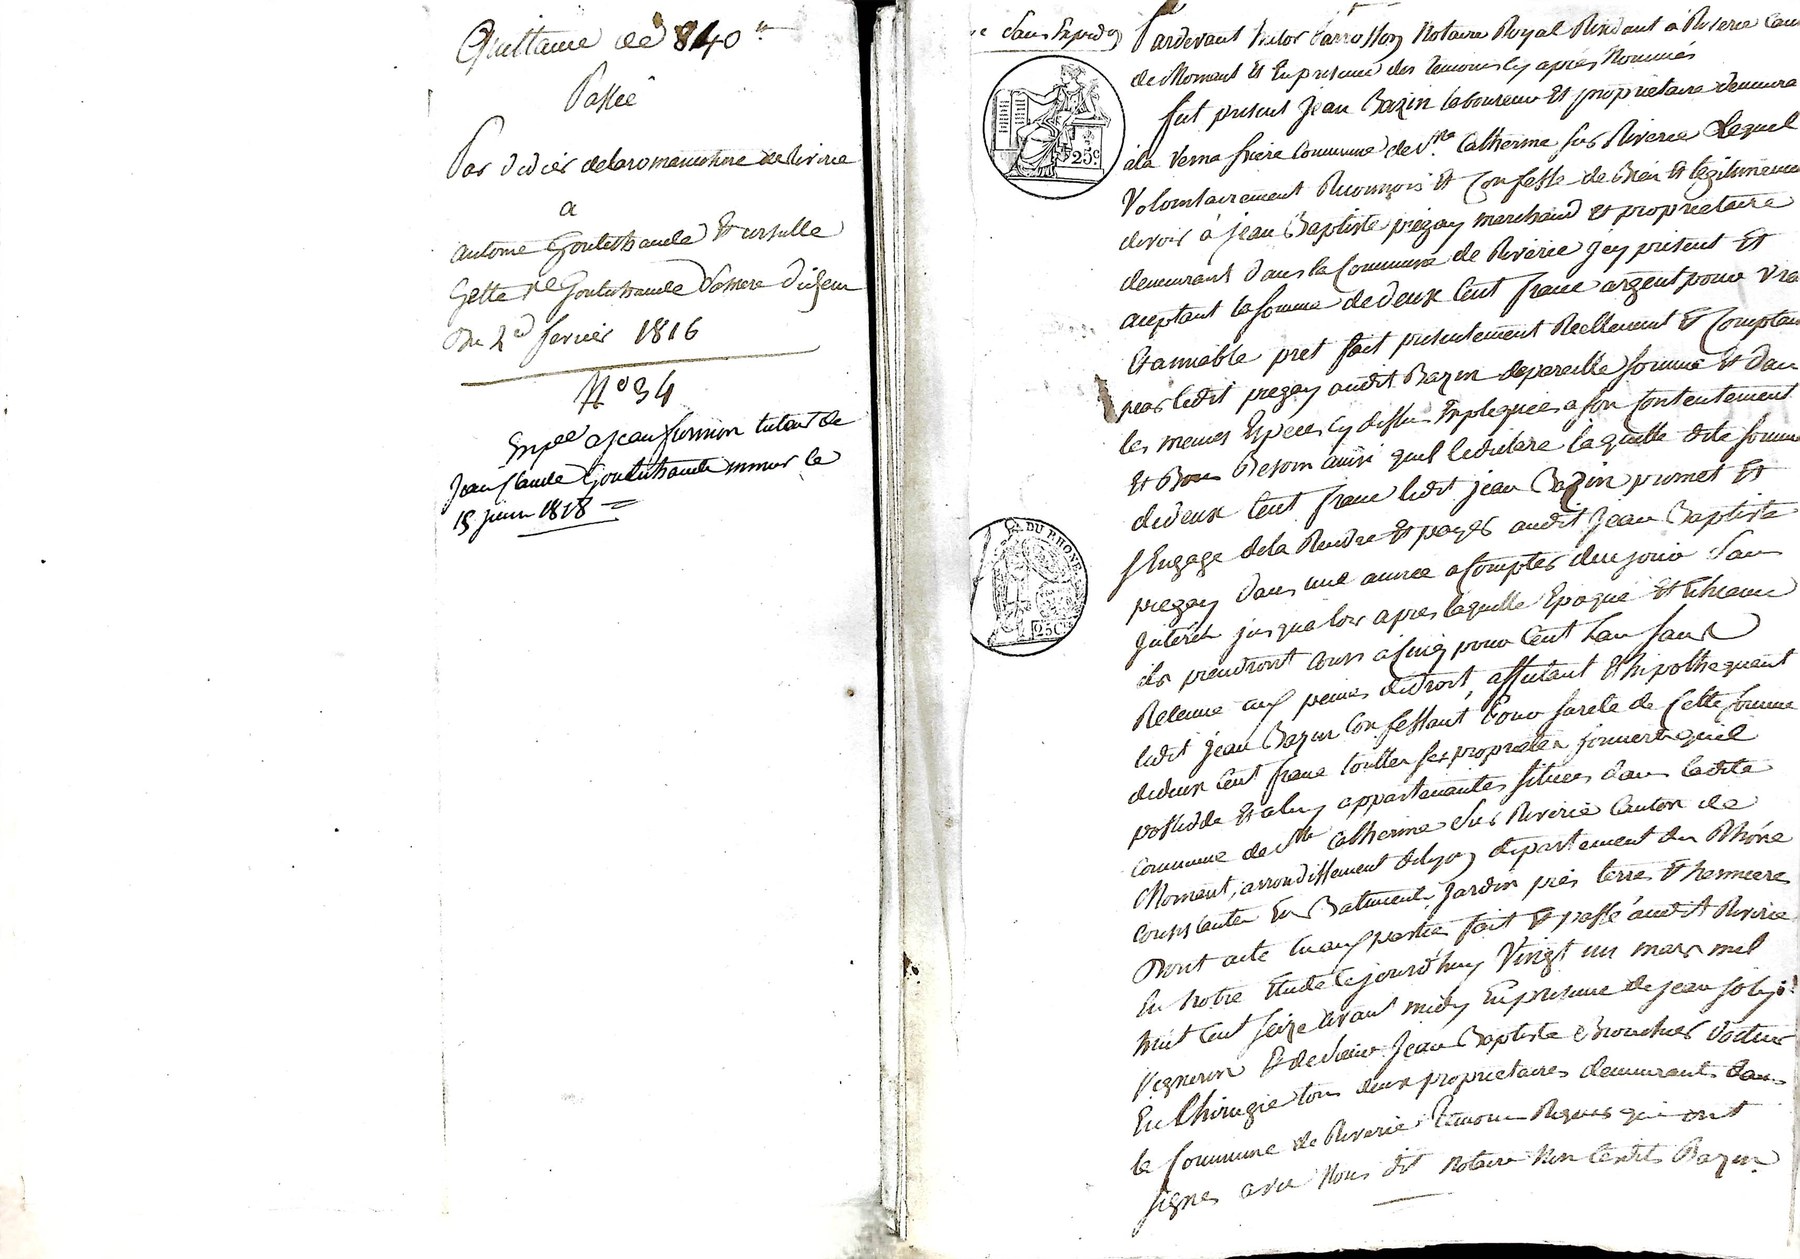 Quittance de 840
Passée
Par didier delaromanchine de Riverie
a
antoine Goutethaude Et ursulle
Gette Goutethaude
Du 2d fevrier 1816
N° 34
Expée a jean tuteur de
jean Claude Goutethaude mineur le
15 juin 1818
dans Expedon
Pardevant notaire Royal Residant à Riverie
de Mornant Et En presence des temoins cy après Nommés
fut present jean Bazin laboureur Et proprietaire demeura
à la Verna frière Commune de Ste Catherine sus Riverie Lequel
Volontairement Reconnois Et Confesse de Bien Et legitimement
devoir à jean Baptiste prezay marchand et proprietaire
demeurant dans la Commune de Riverie jcy present Et
aceptant la somme de deux Cent franc argent pour vrai
Et amiable pret fait presentement Reellement Et Comptan
par ledit prezay audit Bazin depareille somme Et dan
les memes Especes cy dessus Expliquées a son Contentement
Et Bon Besoin ainsi quil le declare laquelle dite somme
de deux Cent franc ledit jean Bazin promet Et
sEngage de la Rendre Et payer audit Jean Baptiste
prezay dans une année a Compter de ce jour sans
jnterêt jusqualors apres laquelle Epoque Et Echeance
ils prendront cours à Cinq pour Cent Lan sans
Retenue aux peines de droit, affectant Et hipothequent
ledit jean Bazin Confessant pour sureté de Cette somme
de deux Cent franc touttes ses proprietés quil
possedde Et a luy appartenantes situées dans ladite
commune de Ste Catherine sus Riverie Canton de
Mornant, arrondissement de lyon departement du Rhône
consistantes En Batiments, Jardin près terres Et hermieres
Dont acte aux parties fait Et passé audit Riverie
En notre Etude Cejourd'huy Vingt un mars mil
huit Cent seize avant midy En presence de jean
Vigneron Et de sieur Jean Baptiste Brouchier docteur
En Chirugie tous deux proprietaires demeurants dans
le Commune de Riverie Temoins Requis qui ont
signés avec Nous dit notaire Non Ledit Bazin
25c.
DU RHONE
25 Ces